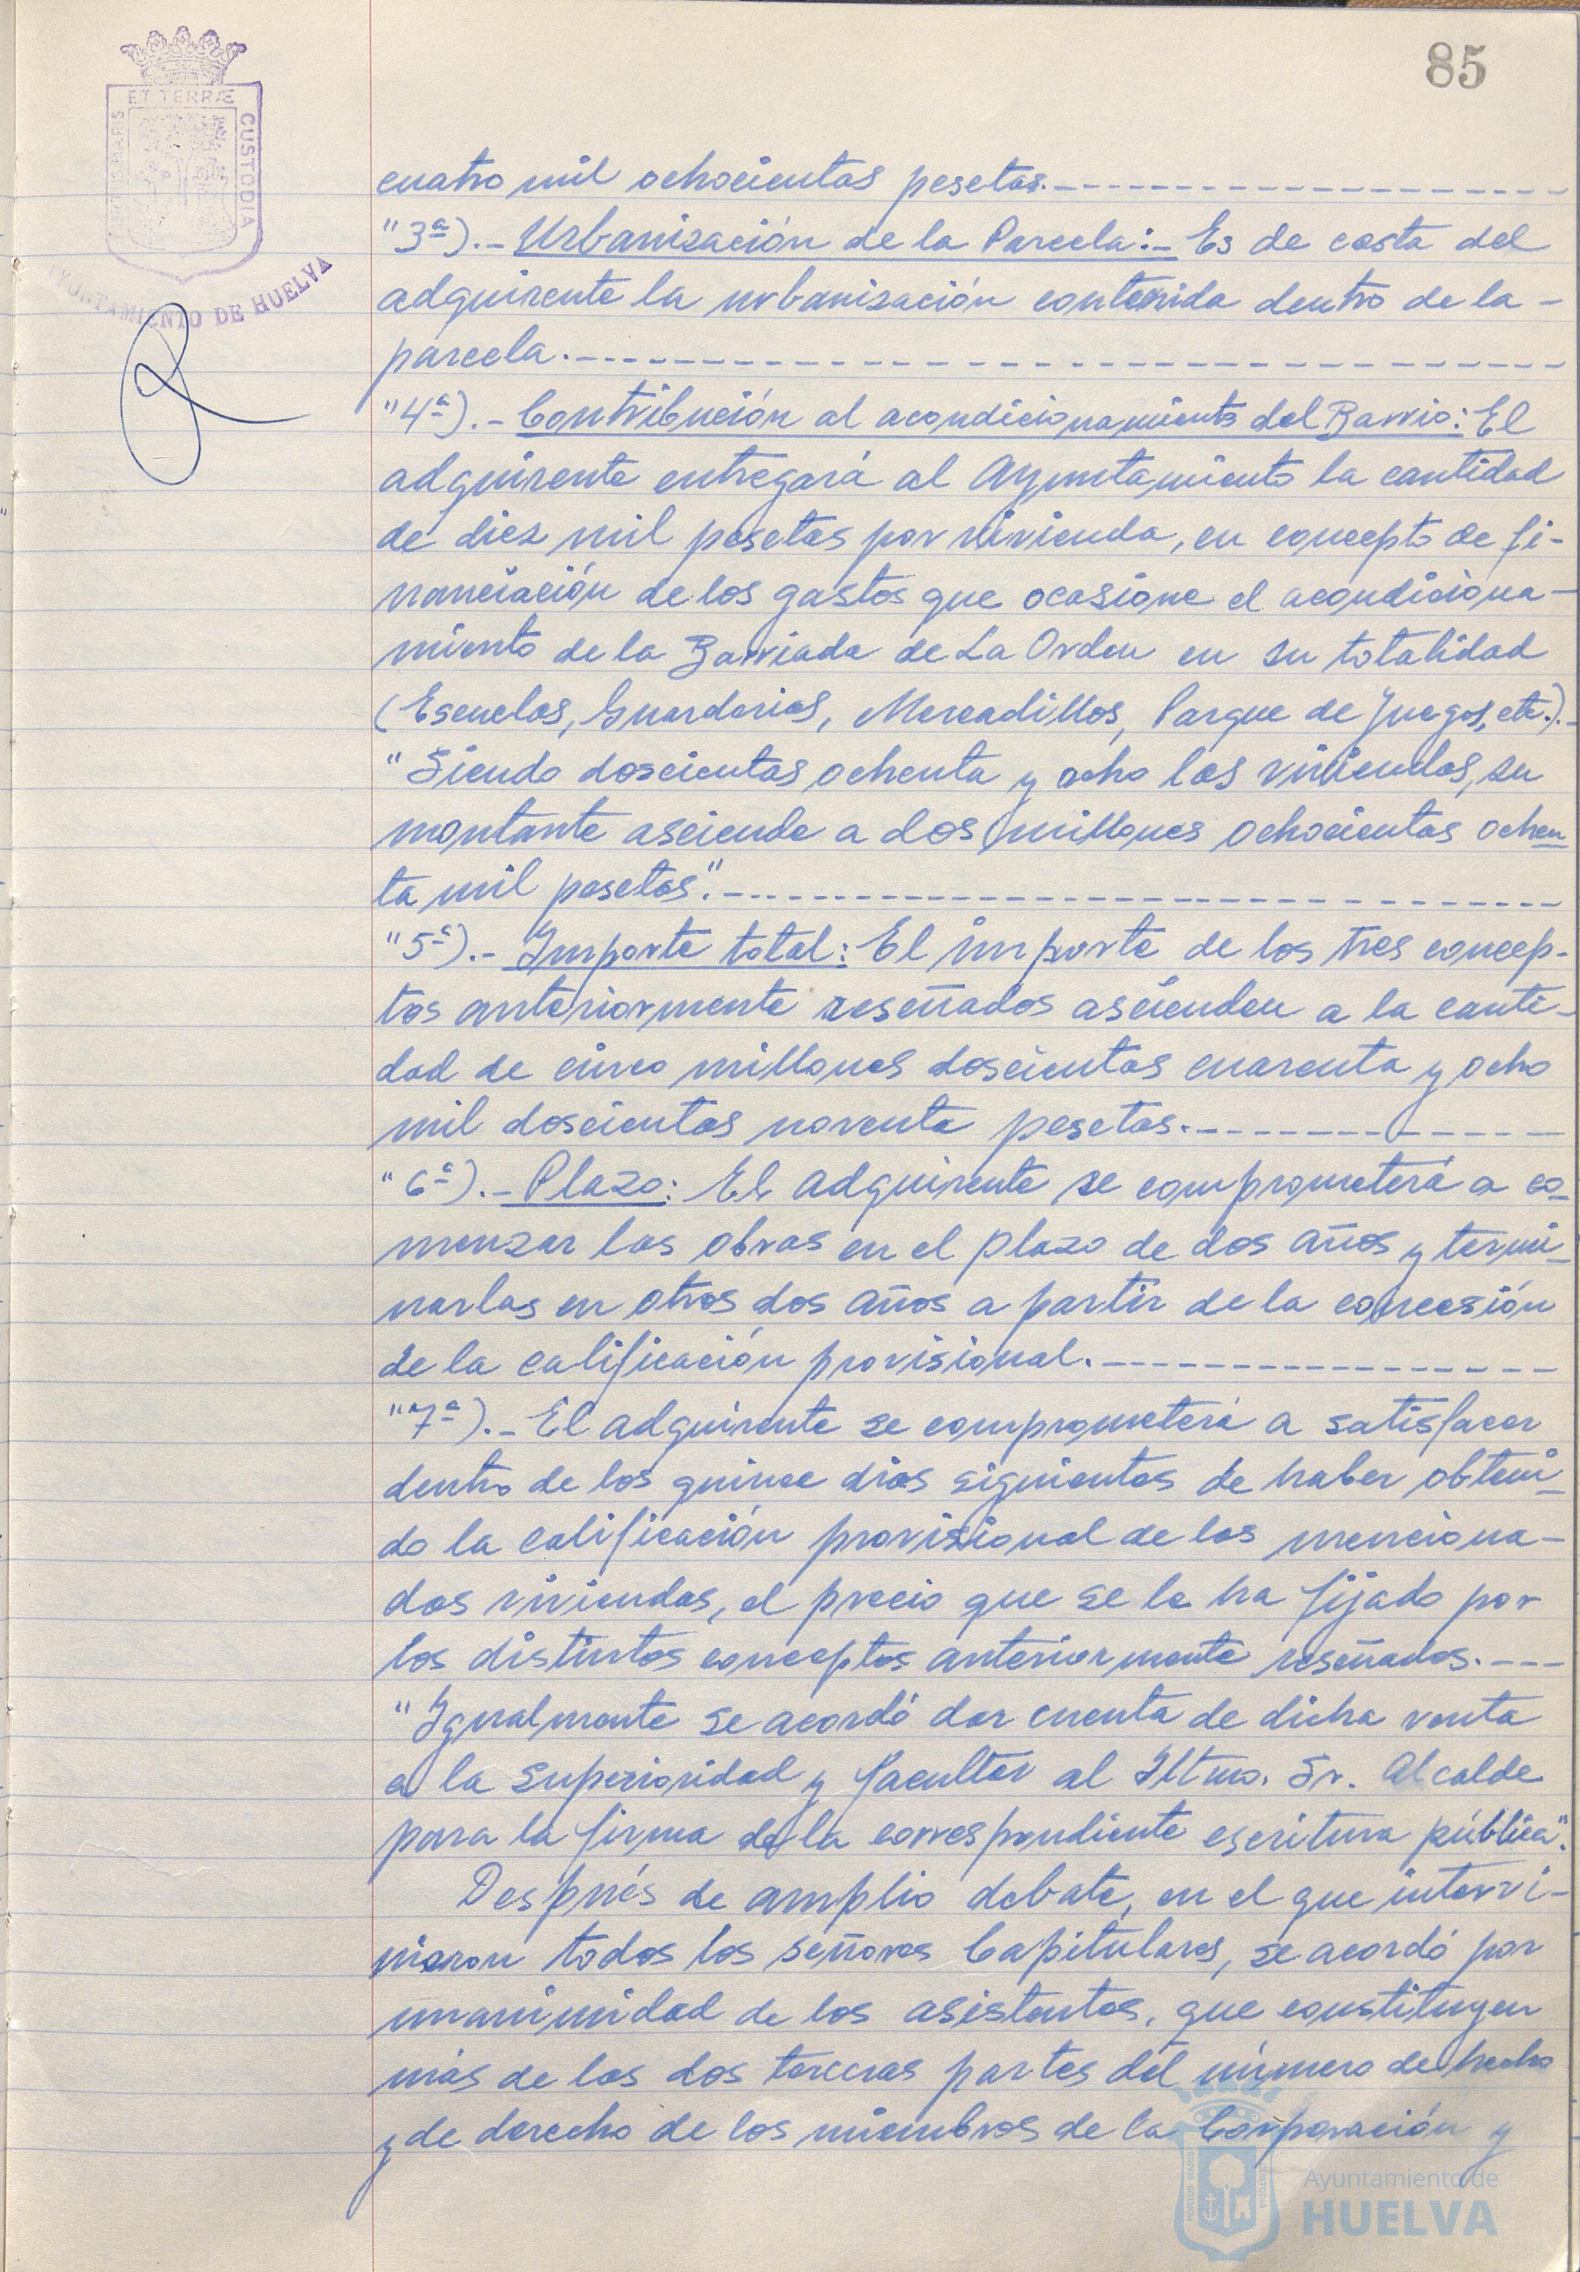 85
ET TERRÆ
CUSTODIA
AYUNTAMIENTO DE HUELVA
cuatro mil ochocientas pesetas.
"3ª).- Urbanización de la Parcela:- Es de costa del
adquirente la urbanización contenida dentro de la -
parcela.
"4ª).- Contribución al acondicionamiento del Barrio: El
adquirente entregará al Ayuntamiento la cantidad
de diez mil pesetas por vivienda, en concepto de fi-
nanciación de los gastos que ocasione el acondiciona-
miento de la Barriada de La Orden en su totalidad
(Escuelas, Guarderias, Mercadillos, Parque de Juegos, etc.).-
"Siendo doscientas ochenta y ocho las viviendas, su
montante asciende a dos millones ochocientas ochen
ta mil pesetas".
"5ª).- Importe total: El importe de los tres concep-
tos anteriormente reseñados ascienden a la canti-
dad de cinco millones doscientas cuarenta y ocho
mil doscientas noventa pesetas.
"6ª).- Plazo: El adquirente se comprometerá a co-
menzar las obras en el plazo de dos años y termi-
narlas en otros dos años a partir de la concesión
de la calificación provisional.
"7ª).- El adquirente se comprometerá a satisfacer
dentro de los quince dias siguientes de haber obteni-
do la calificación provisional de las menciona-
das viviendas, el precio que se le ha fijado por
los distintos conceptos anteriormente reseñados.
"Igualmente se acordó dar cuenta de dicha venta
a la Superioridad y facultar al Iltmo. Sr. Alcalde
para la firma de la correspondiente escritura pública".
Después de amplio debate, en el que intervi-
nieron todos los señores Capitulares, se acordó por
unanimidad de los asistentes, que constituyen
más de las dos terceras partes del número de hecho
y de derecho de los miembros de la Corporación y
Ayuntamiento de
HUELVA